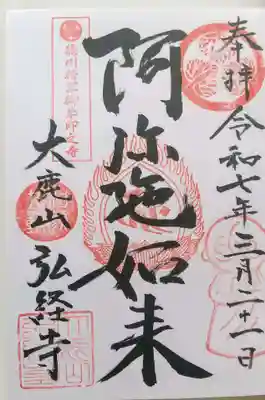 奉拝
令和七年三月二十一日
阿弥陀如来
大鹿山
弘経寺